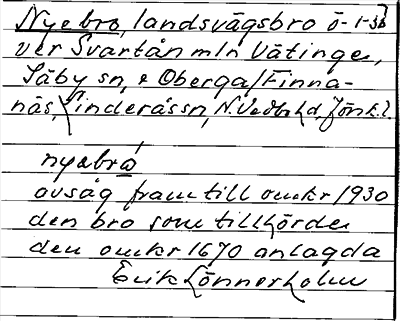 Nyebro, landsvägsbro ö-
ver Svartån mln Vätinge,
Säby sn, & Oberga/Finna-
näs, Linderås sn, N. Vedbo hd, Jönk.l.
nyabrò
avsåg fram till omkr 1930
den bro som tillhörde
den omkr 1670 anlagda
Erik Lönnerholm